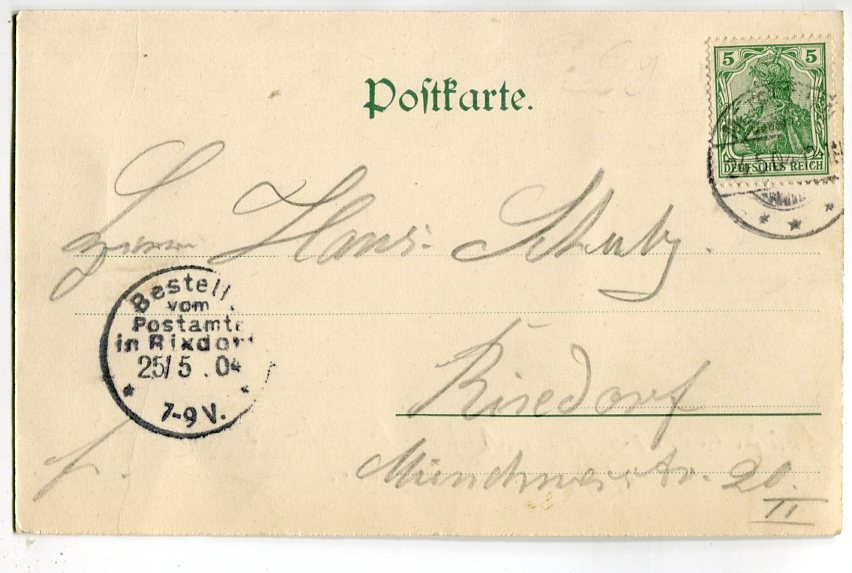 Postkarte.
5 5
DEUTSCHES REICH
Herrn Hans
Bestell
vom
Postamte
in Rixdorf
25/5 . 04
7-9 V.
Rixdorf
str. 20.
II